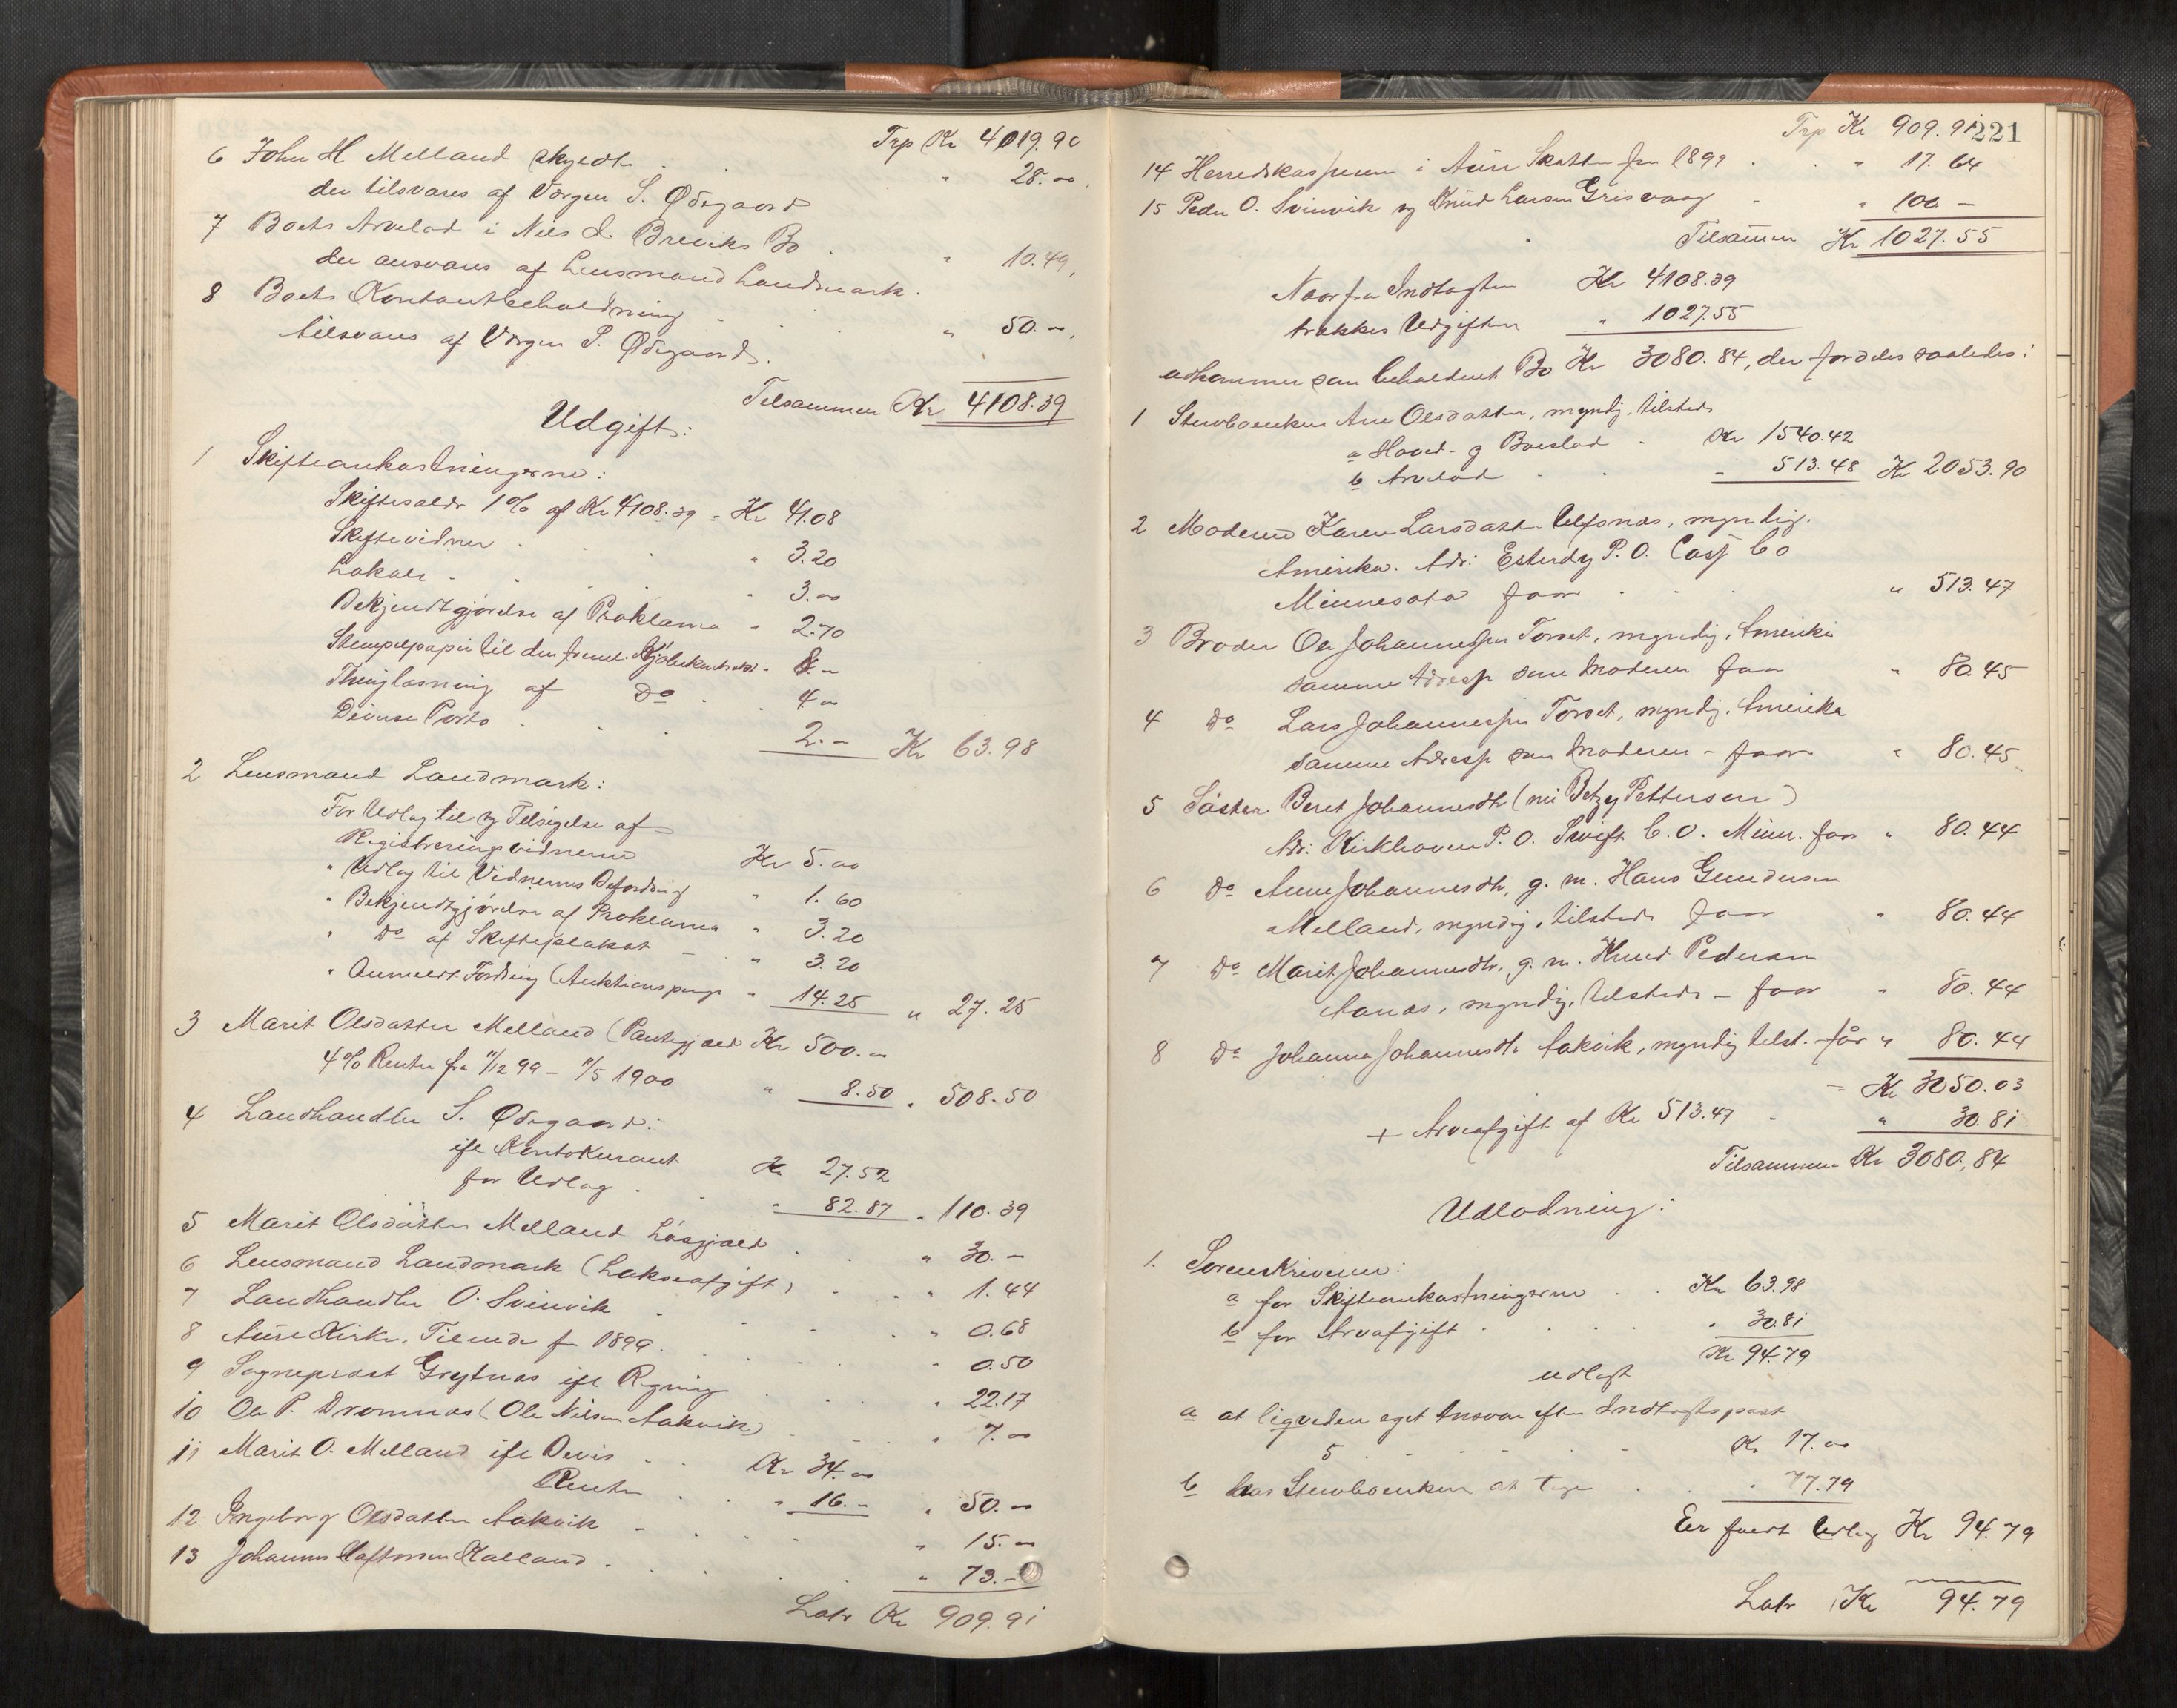 Trp Kr 4019.90
6 John H Melland skyldte . " 28.00
der tilsvares af Værgen S. Ødegaard
7 Boets Arvelod i Nils L. Breviks Bo . " 10.49
der ansvares af Lensmand Landmark.
8 Boets Kontantbeholdning . . . " 50.00
tilsvares af Værgen S. Ødegaard.
Tilsammen Kr 4108.39
Udgift:
1 Skifteomkostningerne:
Skiftesalær 1% af Kr 4108.39 = Kr 41.08
Skiftevidner . . . " 3.20
Lokale . . . " 3.00
Bekjendtgjørelse af Proklama " 2.70
Stempelpapir til den freml. Kjøbekontrakt " 8.-
Thinglæsning af Do . . 4.00
Diverse Porto . . . 2.- Kr 63.98
2 Lensmand Landmark:
For Udlæg til og Tilsigelse af
Registreringsvidnerne Kr 5.00
" Udlæg til Vidnernes Befordring " 1.60
" Bekjendtgjørelse af Proklama " 3.20
" Do af Skifteplakat - " 3.20
" Anmeldt Fordring (Auktionspenge " 14.25 " 27.25
3 Marit Olsdatter Melland (Pantegjæld Kr 500.-
4% Renter fra 11/12 99 - 11/5 1900 " 8.50 " 508.50
4 Landhandler S. Ødegaard:
ifl Kontokurant Kr 27.52
for Udlæg . . " 82.87 " 110.39
5 Marit Olsdatter Melland Løsgjæld . " 30.-
6 Lensmand Landmark (Lakseafgift) . . " 1.44
7 Landhandler O. Svinvik . . . " 0.68
8 Aure Kirke, Tiende for 1899 . . . " 0.50
9 Sogneprest Grytnæs ifl Regning . . " 22.17
10 Ole P. Dromnæs (Ole Nilsen Aakvik) . . " 7.00
11 Marit O. Melland ifl Bevis . . Kr 34.00
Renter . . " 16.- " 50.00
12 Ingeborg Olsdatter Aakvik - . . . " 15.00
13 Johannes Kalland . . . . " 73.-
Latr Kr 909.91
Trp Kr 909.91
221
14 Herredskassereren i Aure Skatter for 1899 . . " 17.64
15 Peder O. Svinvik og Knud Larsen Grisvaag - " 100 -
Tilsammen Kr 1027.55
Naar fra Indtægten Kr 4108.39
trækkes Udgiften " 1027.55
udkommer som beholdent Bo Kr 3080.84, der fordeles saaledes:
1 Stervboenken Ane Olsdatter, myndig, tilstede
a Hoved- og Boeslod . Kr 1540.42
b Arvelod . . " 513.48 Kr 2053.90
2 Moderen Karen Larsdatter Ulfsnæs, myndig.
Amerika. Adr: Esterdy P.O. Cass Co
Minnesota faar . . . " 513.47
3 Broder Ole Johannessen Torset, myndig, Amerika
samme Adresse som Moderen faar " 80.45
4 Do Lars Johannessen Torset, myndig, Amerika
samme Adresse som Moderen - faar " 80.45
5 Søster Beret Johannesdtr (nu Betzy Pettersen)
Adr. Kirkhoven P.O. Swift C.O. Minn. faar " 80.44
6 Do Anne Johannesdtr, g. m. Hans Gundersen
Melland, myndig, tilstede faar " 80.44
7 Do Marit Johannesdtr, g. m. Knud Pedersen
Aanæs, myndig, tilstede - faar " 80.44
8 Do Johanna Johannesdtr Aakvik, myndig tilst. får " 80.44
= Kr 3050.03
+ Arveafgift af Kr 513.47 - " 30.81
Tilsammen Kr 3080,84
Udlodning:
1. Sorenskriveren:
a for Skifteomkostningerne . . Kr 63.98
b for Arveafgift . . . . " 30.81
Kr 94.79
udlagt
a at ligvedere eget Ansvar efter Indtægtspost
5 . . . . - Kr 17.00
b hos Stervboenken at tage . . " 77.79
Er fuldt Udlæg Kr 94.79
Latr Kr 94.79